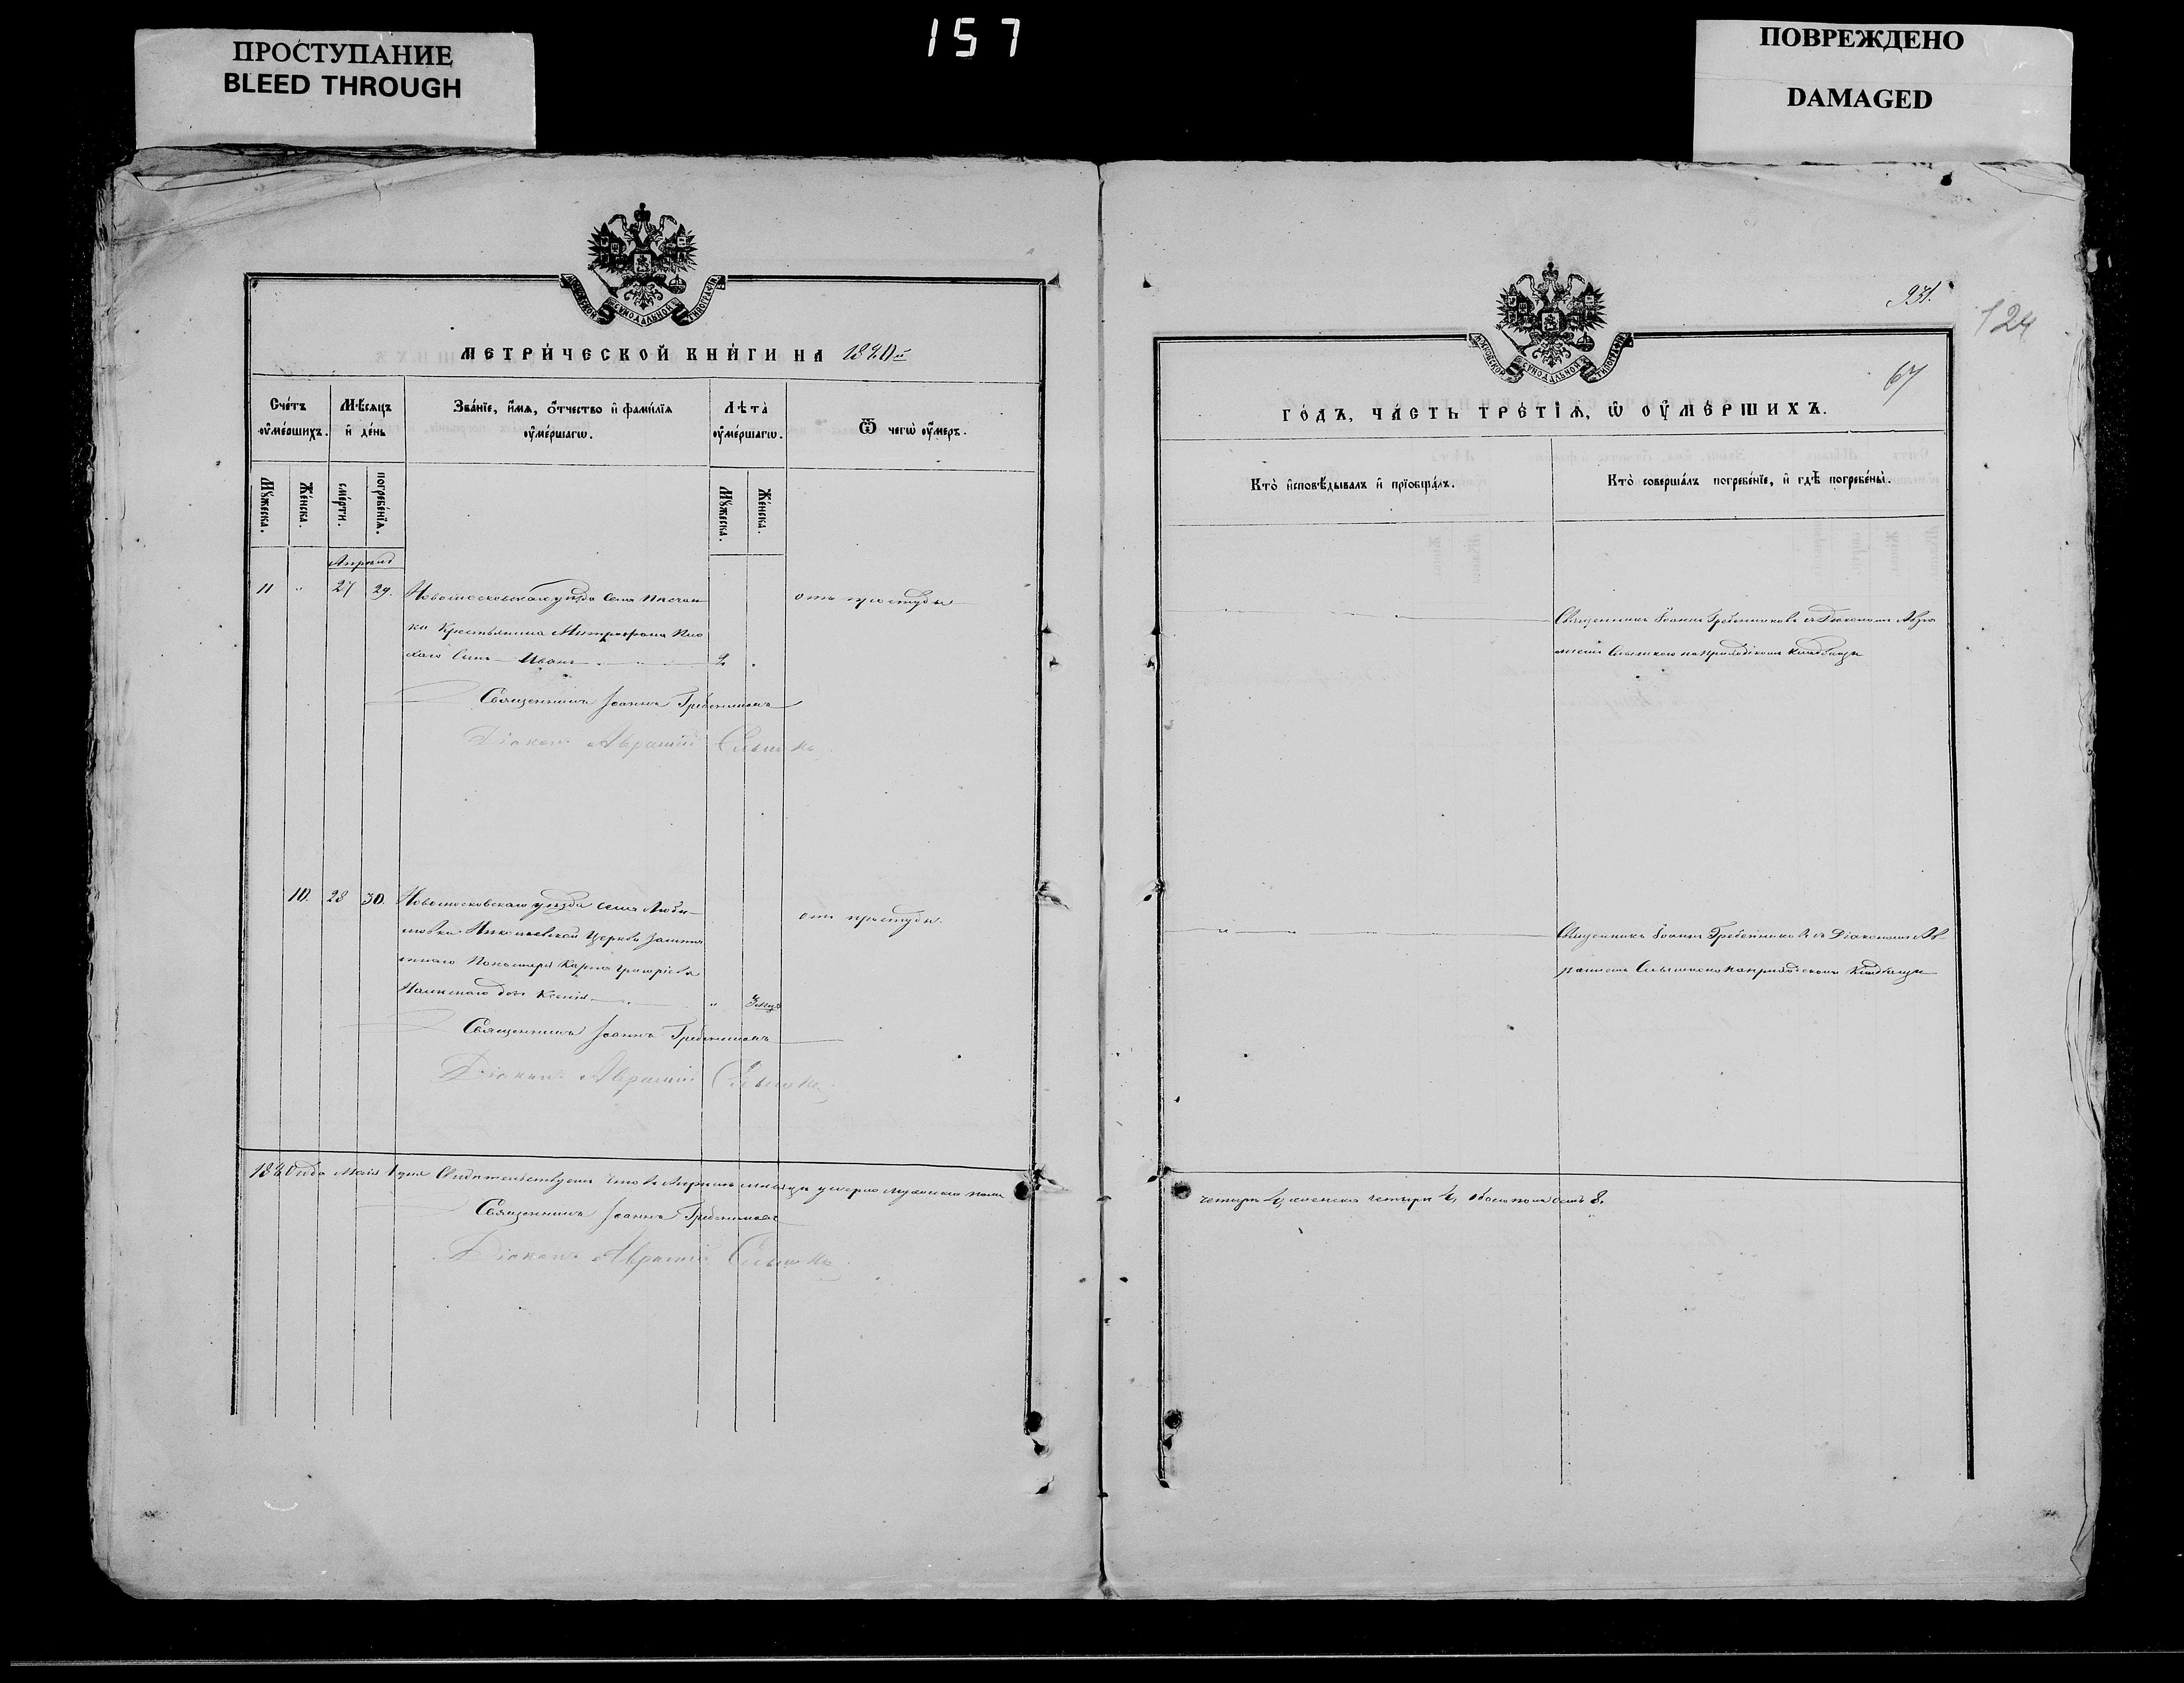 157
ПРОСТУПАНИЕ
BLEED THROUGH
ПОВРЕЖДЕНО
DAMAGED
МЕТРИ́ЧЕСКОЙ КНИ́ГИ НА
Сче́тъ оу҆ме́ршихъ.
Мѣ́сяцъ и҆ де́нь
Зва́нїе, и҆́мѧ, ѻ҆́тчество и҆ фами́лїѧ оу҆ме́ршагѡ.
Лѣта̀ оу҆ме́ршагѡ.
Ѿ чегѡ̀ оу҆́меръ.
Мꙋ́жеска.
Же́нска.
сме́рти.
погребе́нїѧ.
Мꙋ́жеска.
Же́нска.
11 " 27 29. Новомосковскаго уѣзда Села
отъ простуды
ки Крестьянина Митрофана
Сынъ Иванъ 2 "
Священникъ Іоаннъ Гребенниковъ
Діаконъ Аврамій
10. 28 30. Новомосковскаго уѣзда села Люби-
отъ простуды.
мовки Николаевской Церкви
Пономаря Карпа
дочь Ксенія " 3 мѣс
Священникъ Іоаннъ Гребенниковъ
Діаконъ Аврамій
года Маія 1 дня Свидѣтельствуемъ что въ Апрѣлѣ мѣсяцѣ умерло мужеска пола
Священникъ Іоаннъ Гребенниковъ
Діаконъ Аврамій
931.
124
67
ГО́ДЪ, ЧА́СТЬ ТРЕ́ТЇѦ, Ѡ҆ ОУ҆МЕ́РШИХЪ.
Кто̀ и҆сповѣ́дывалъ и҆ прїѡбща́лъ.
Кто̀ соверша́лъ погребе́нїе, и҆ гдѣ̀ погребены̀.
Священникъ Іоаннъ Гребенниковъ съ Діакономъ Авра
міемъ на приходскомъ кладбищѣ
Священникъ Іоаннъ Гребенниковъ съ Діакономъ Ав-
раміемъ на приходскомъ кладбищѣ
четыри 4, женска четыри 4, обоего пола осмь 8.